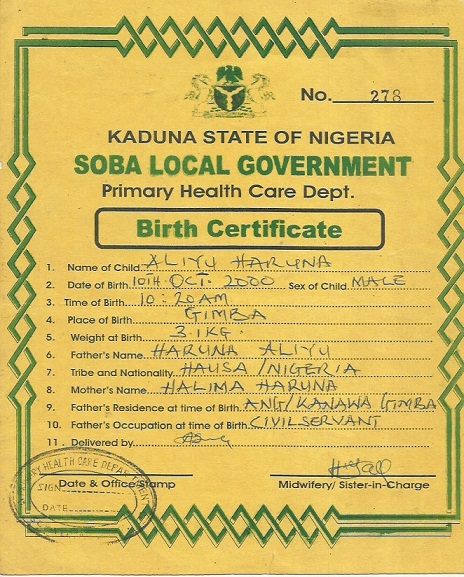 No. 278
KADUNA STATE OF NIGERIA
SOBA LOCAL GOVERNMENT
Primary Health Care Dept.
Birth Certificate
1. Name of Child ALIYU HARUNA
2. Date of Birth 10TH OCT. 2000 Sex of Child MALE
3. Time of Birth 10:20AM
4. Place of Birth GIMBA
5. Weight at Birth 3.1KG.
6. Father's Name HARUNA ALIYU
7. Tribe and Nationality HAUSA/NIGERIA
8. Mother's Name HALIMA HARUNA
9. Father's Residence at time of Birth ANG/KANAWA GIMBA
10. Father's Occupation at time of Birth CIVIL SERVANT
11. Delivered by
HEALTH CARE
SIGN
DATE
Date & Office Stamp Midwifery/ Sister-in-Charge